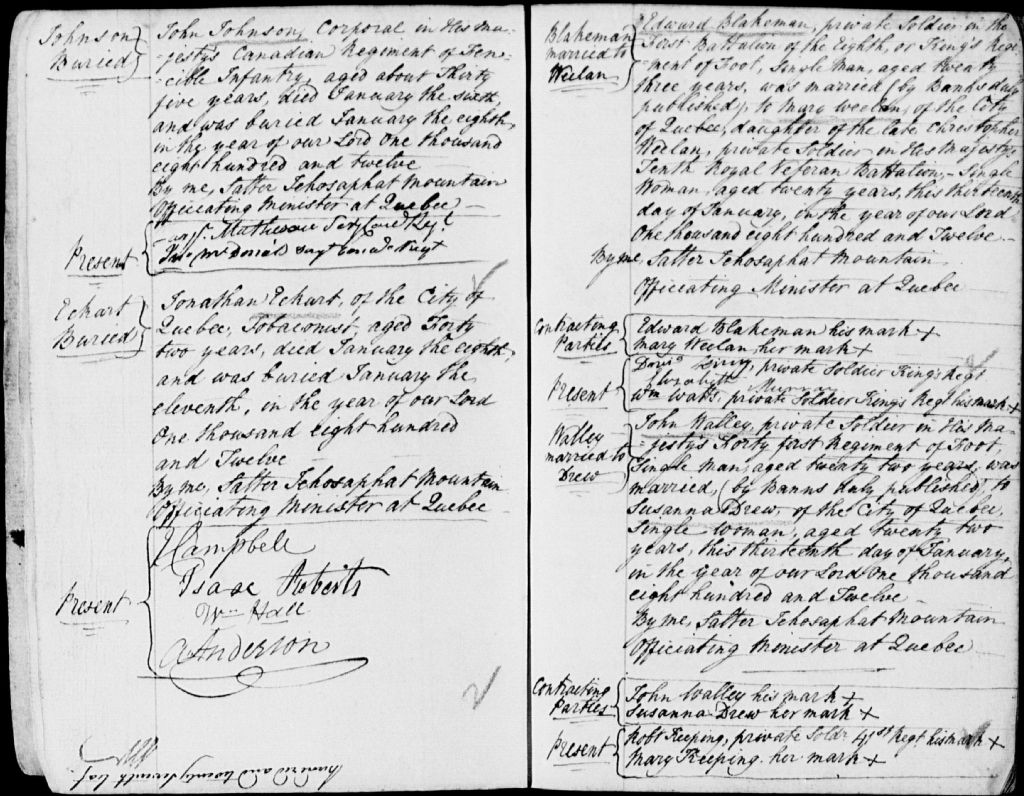 Johnson
Buried
John Johnson, Corporal in His Ma-
-jesty's Canadian Regiment of Fen-
cible Infantry, aged about Thirty
five years, died January the sixth,
and was buried January the eighth,
in the year of our Lord One thousand
eight hundred and twelve
By me, Salter Jehosaphat Mountain
Officiating Minister at Quebec
Present
Mathewson
McDonald
Eckart
Buried
Jonathan Eckart, of the City of
Quebec, Tobaconist, aged Forty
two years, died January the eighth,
and was buried January the
eleventh, in the year of our Lord
One thousand eight hundred
and Twelve
By me, Salter Jehosaphat Mountain
Officiating Minister at Quebec
Present
Campbell
Isaac Roberts
Wm Hall
Anderson
Blakeman
married to
Weelan
Edward Blakeman, private Soldier in the
First Battalion of the Eighth, or King's Regi-
ment of Foot, Single Man, aged twenty
three years, was married (by Banns duly
published), to Mary Weelan, of the City
of Quebec, daughter of the late Christopher
Weelan, private Soldier in His Majesty's
Tenth Royal Veteran Battalion, Single
Woman, aged twenty years, this thirteenth
day of January, in the year of our Lord
One thousand eight hundred and Twelve
By me, Salter Jehosaphat Mountain
Officiating Minister at Quebec
Contracting
Parties
Edward Blakeman his mark +
Mary Weelan her mark +
Present
private Soldier King's Regt
Elizabeth Murray
Wm Watts, private Soldier King's Regt his mark +
Walley
married to
Drew
John Walley, private Soldier in His Ma-
-jesty's Forty first Regiment of Foot,
Single Man, aged twenty two years, was
married, (by Banns duly published) to
Susanna Drew, of the City of Quebec,
Single Woman, aged twenty two
years, this thirteenth day of January,
in the year of our Lord One thousand
eight hundred and Twelve
By me, Salter Jehosaphat Mountain
Officiating Minister at Quebec
Contracting
Parties
John Walley his mark +
Susanna Drew her mark +
Present
Robt Keeping, private Soldr 41st Regt his mark +
Mary Keeping her mark +